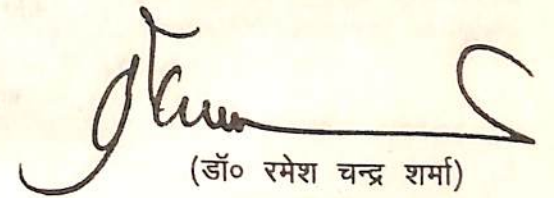 (डॉ० रमेश चन्द्र शर्मा)